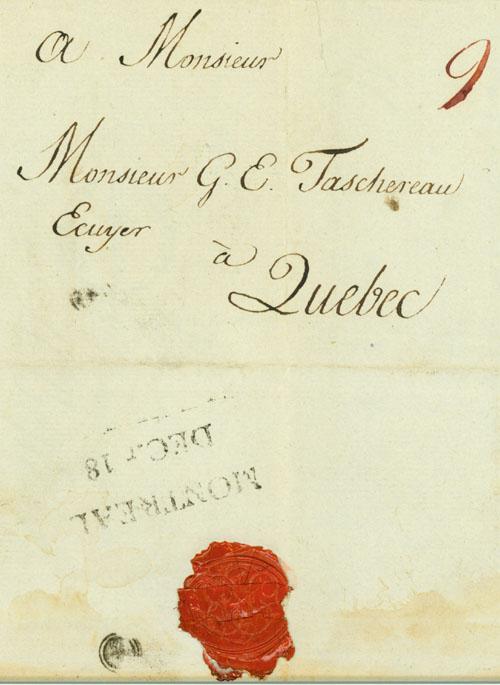 A Monsieur
9
Monsieur G. E. Taschereau
Ecuyer
à
Quebec
MONTREAL
DEC.r 18